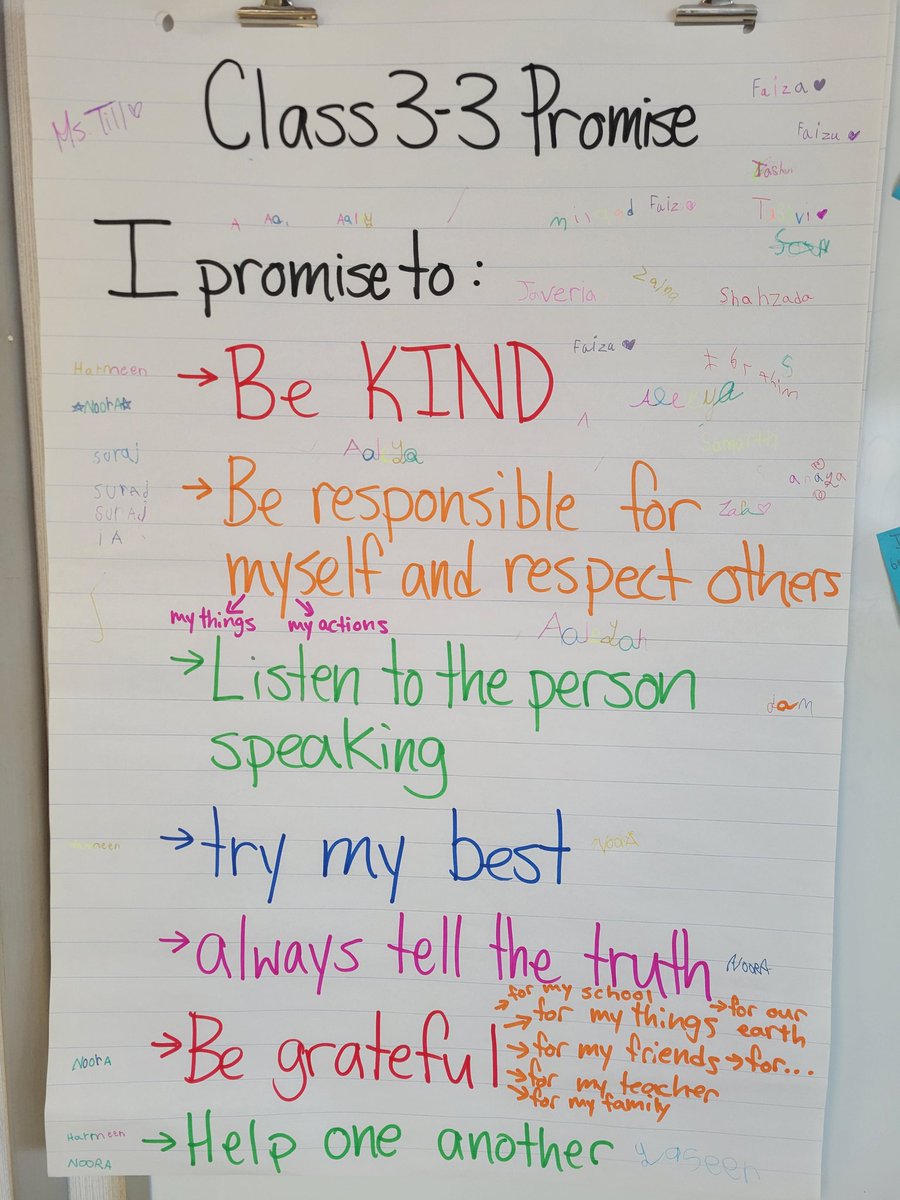 Class 3-3 Promise
Faiza
Ms. Till
Faiza
Tasvi
A Aa. Aaly
Faiza
I promise to:
Javeria
Shahzada
→ Be KIND
Faiza
Harmeen
Ibrathim
NoorA
Aleeya
Samarth
suraj
Aalya
anaya
→ Be responsible for
suraj
suraj
myself and respect others
IA
my things my actions
Aaleyah
→ Listen to the person
speaking
→ try my best
NoorA
Harmeen
→ always tell the truth
NoorA
→ for my school
→ for my things
→ for our earth
→ Be grateful
→ for my friends → for...
→ for my teacher
→ for my family
NoorA
→ Help one another
Harmeen
NOORA
Yaseen